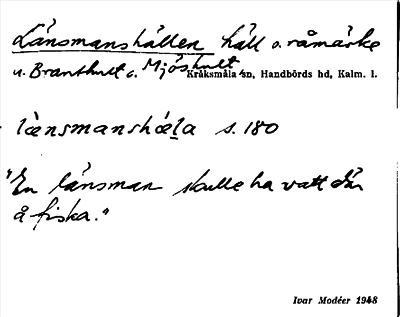 Länsmanshällen häll o. råmärke
u. Branthult o. Mjöshult
Kråksmåla sn, Handbörds hd, Kalm. l.
lànsmanshǽla s. 180
"En länsman skulle ha vatt där
å fiska."
Ivar Modéer 1948